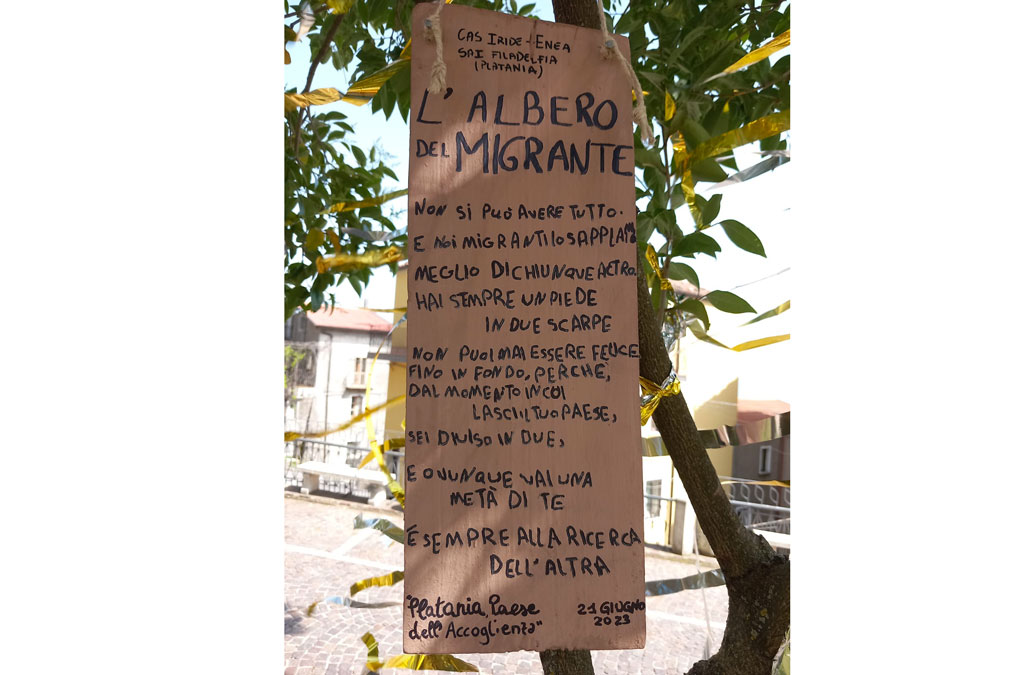 CAS IRIDE - ENEA
SAI FILADELFIA
(PLATANIA)
L'ALBERO
DEL MIGRANTE
NON SI PUÒ AVERE TUTTO.
E NOI MIGRANTI LO SAPPIAMO
MEGLIO DI CHIUNQUE ALTRO.
HAI SEMPRE UN PIEDE
IN DUE SCARPE
NON PUOI MAI ESSERE FELICE
FINO IN FONDO, PERCHÈ,
DAL MOMENTO IN CUI
LASCI IL TUO PAESE,
SEI DIVISO IN DUE,
E OVUNQUE VAI UNA
METÀ DI TE
È SEMPRE ALLA RICERCA
DELL'ALTRA
"Platania, Paese
dell'Accoglienza"
21 GIUGNO
2023